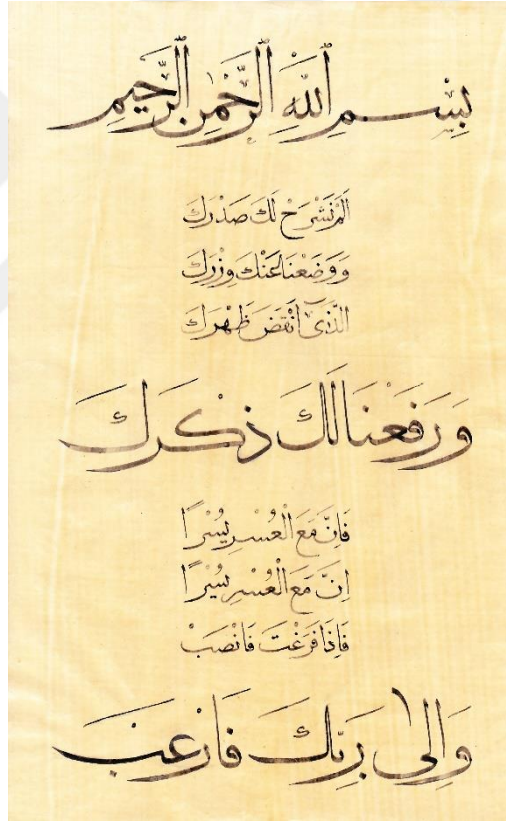 بِسْمِ اللّٰهِ الرَّحْمٰنِ الرَّحِيمِ
اَلَمْ نَشْرَحْ لَكَ صَدْرَكَ
وَوَضَعْنَا عَنْكَ وِزْرَكَ
الَّذِىٓ اَنْقَضَ ظَهْرَكَ
وَرَفَعْنَا لَكَ ذِكْرَكَ
فَاِنَّ مَعَ الْعُسْرِ يُسْرًا
اِنَّ مَعَ الْعُسْرِ يُسْرًا
فَاِذَا فَرَغْتَ فَانْصَبْ
وَاِلٰى رَبِّكَ فَارْغَبْ